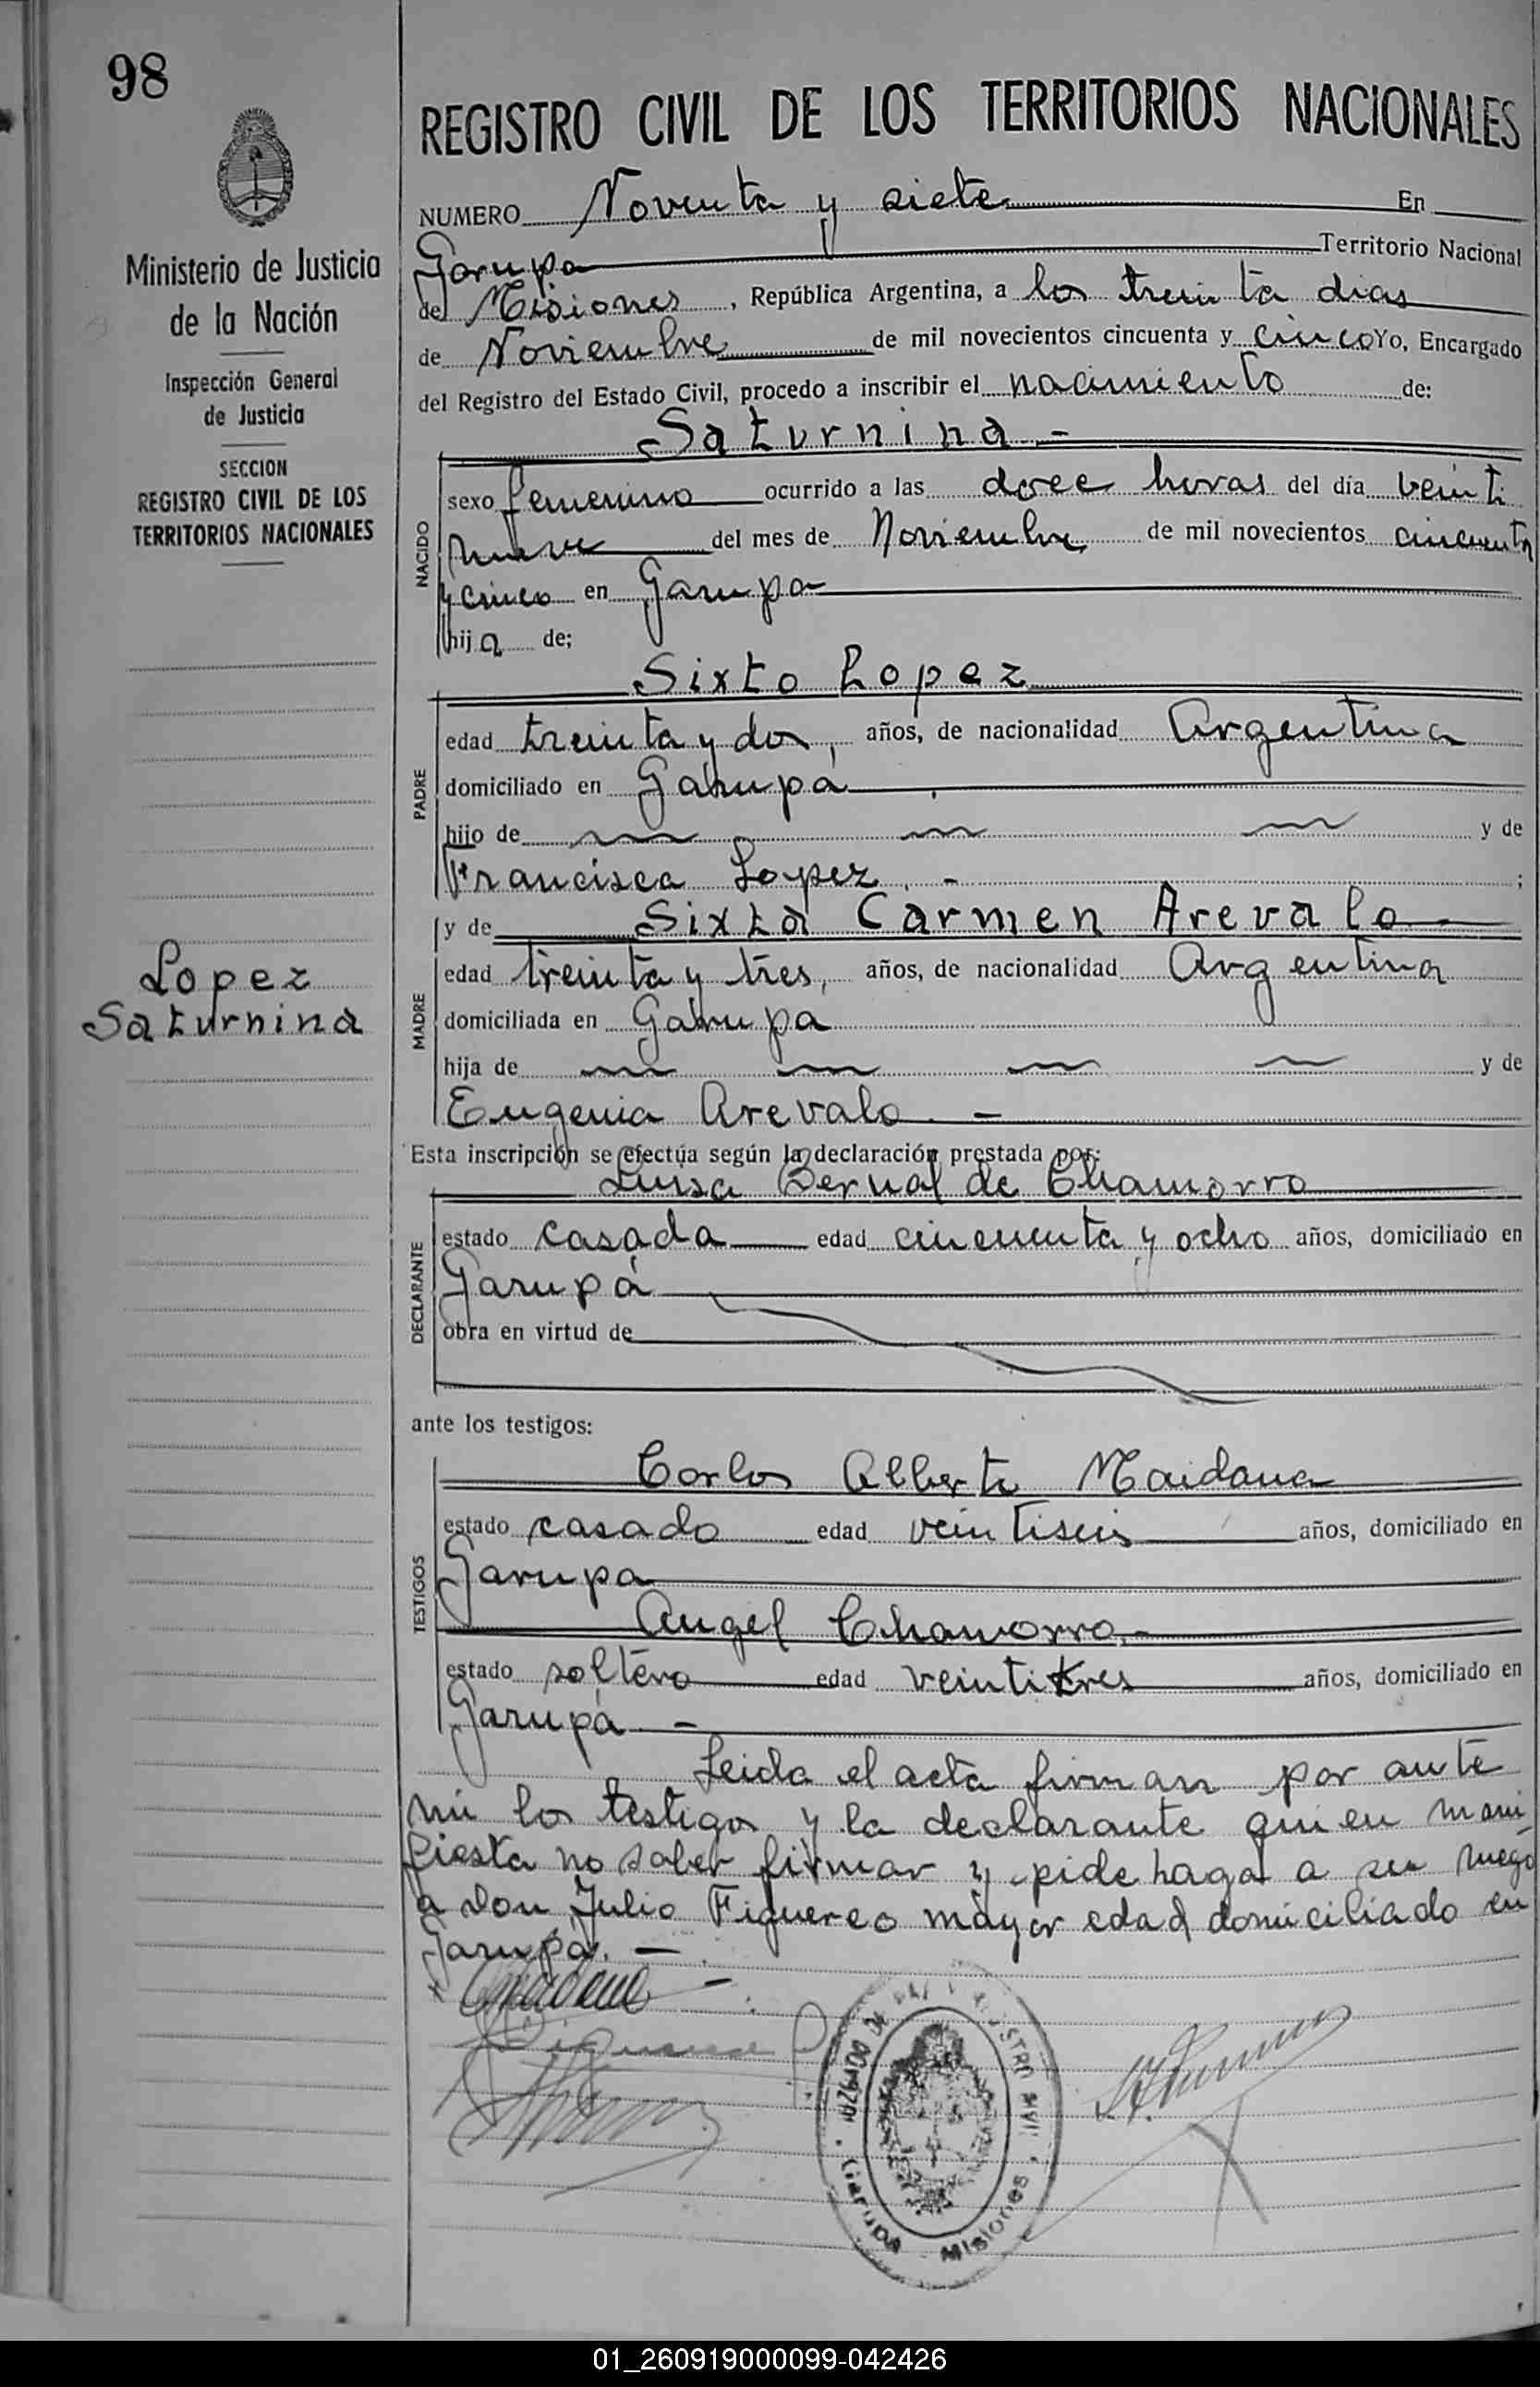 98
Ministerio de Justicia
de la Nación
Inspección General
de Justicia
SECCION
REGISTRO CIVIL DE LOS
TERRITORIOS NACIONALES
Lopez
Saturnina
REGISTRO CIVIL DE LOS TERRITORIOS NACIONALES
NUMERO Noventa y siete En
Garupa Territorio Nacional
de Misiones, República Argentina, a los treinta dias
de Noviembre de mil novecientos cincuenta y cinco Yo, Encargado
del Registro del Estado Civil, procedo a inscribir el nacimiento de:
Saturnina.-
NACIDO
sexo femenino ocurrido a las doce horas del día veinti
nueve del mes de Noviembre de mil novecientos cincuenta
y cinco en Garupa
hija de;
Sixto Lopez
PADRE
edad treinta y dos, años, de nacionalidad Argentina
domiciliado en Garupá
hijo de y de
Francisca Lopez. - ;
y de Sixta Carmen Arevalo -
MADRE
edad treinta y tres, años, de nacionalidad Argentina
domiciliada en Garupa
hija de y de
Eugenia Arevalo. -
Esta inscripción se efectúa según la declaración prestada por:
Luisa Bernal de Chamorro
DECLARANTE
estado casada edad cincuenta y ocho años, domiciliado en
Garupá
obra en virtud de
ante los testigos:
Carlos Alberto Maidana
TESTIGOS
estado casado edad veintiseis años, domiciliado en
Garupa
Angel Chamorro.-
estado soltero edad veintitres años, domiciliado en
Garupá. -
Leida el acta firman por ante
mi los testigos y la declarante quien mani
fiesta no saber firmar y pide haga a su ruego
a don Julio Figueredo mayor edad domiciliado en
Garupá. -
Garupá Misiones
01_260919000099-042426